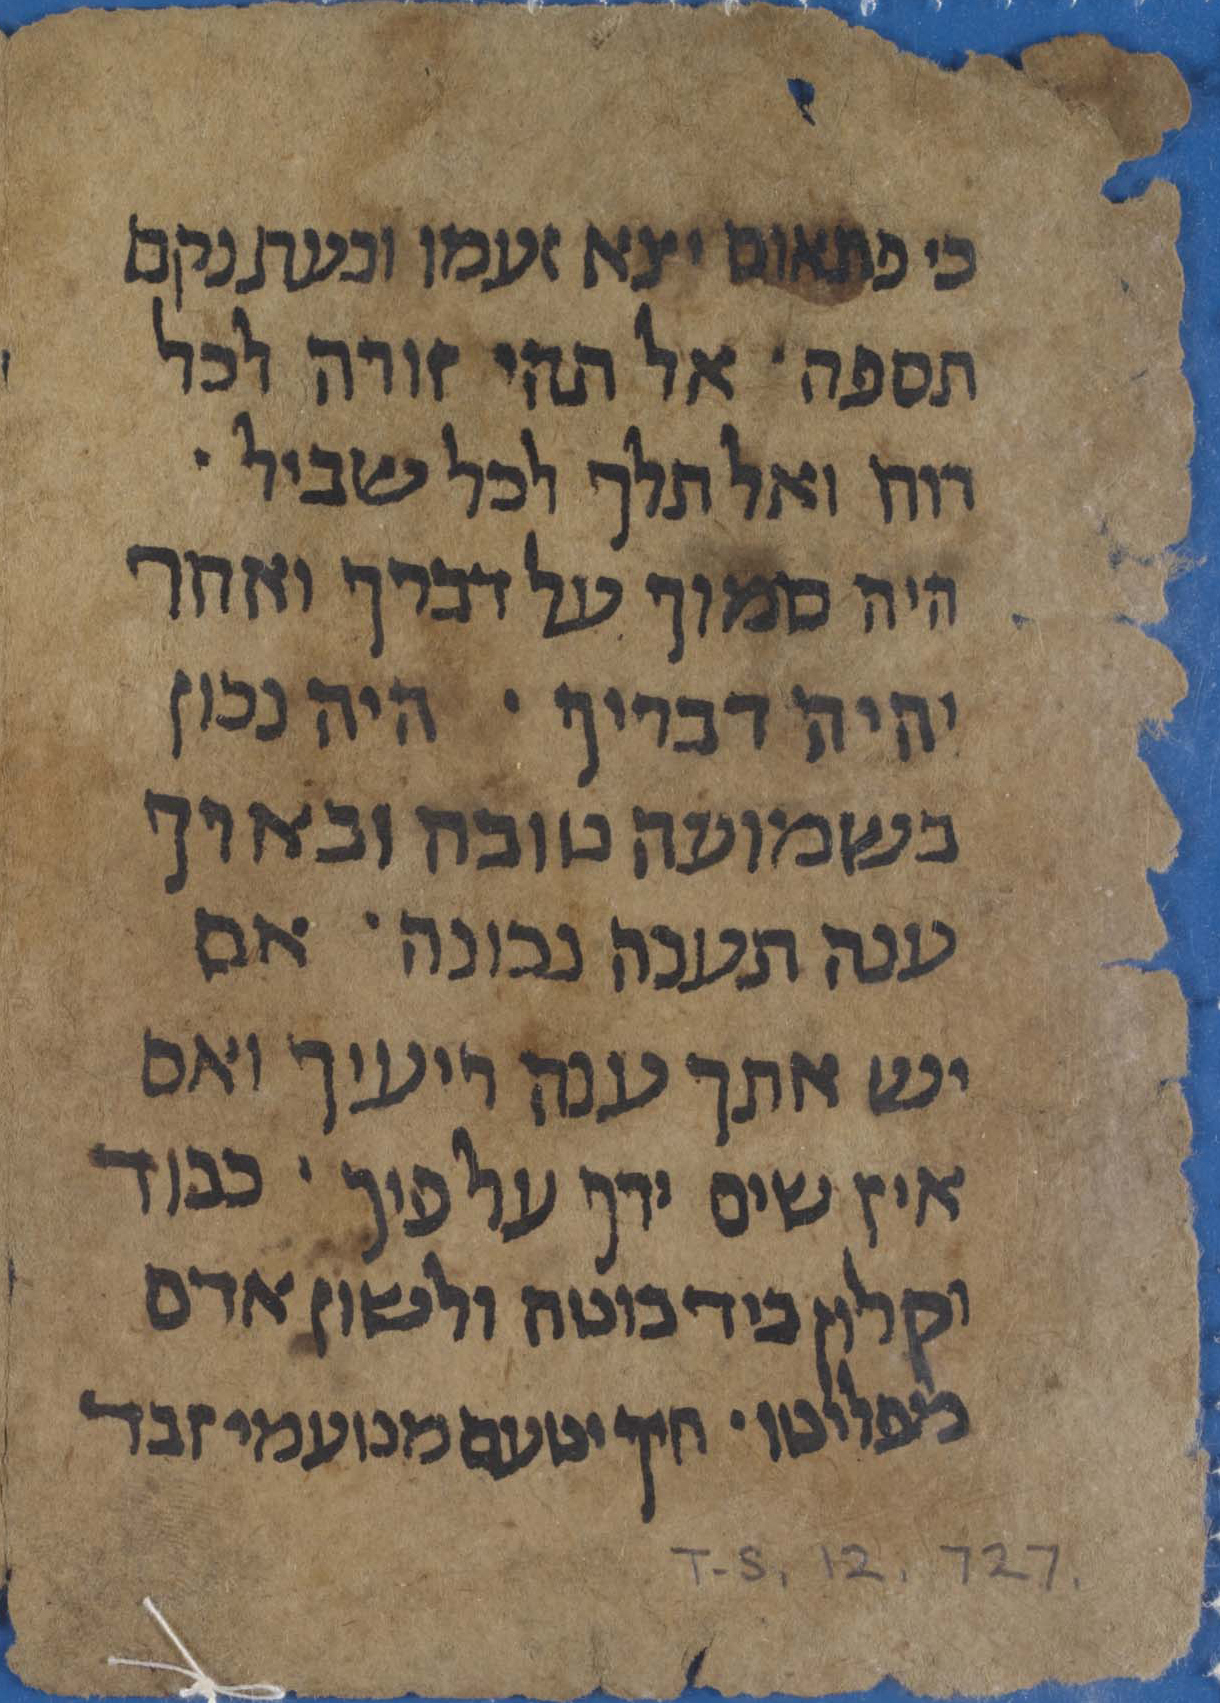 כי פתאום יצא זעמו ובעת נקם
תספה · אל תהי זורה לכל
רוח ואל תלך לכל שביל ·
היה סמוך על דברך ואחר
יהיה דבריך · היה נכון
בשמועה טובה ובארך
ענה תענה נכונה · אם
יש אתך ענה ריעיך ואם
אין שים ידך על פיך · כבוד
וקלון ביד בוטה ולשון אדם
מפליטו · חיך יטעם מטעמי זבד
T-S. 12. 727.